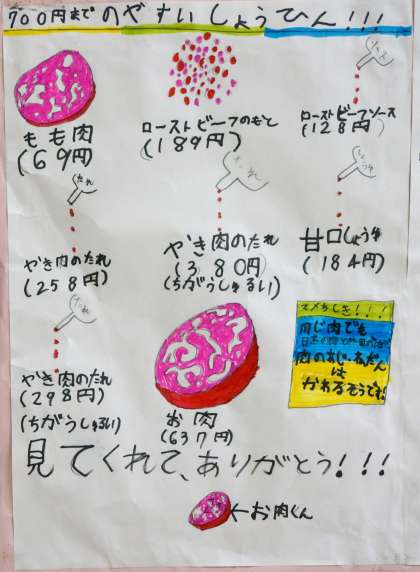 700円までのやすいしょうひん!!!
もも肉
(69円)
ローストビーフのもと
(189円)
たれ
ローストビーフソース
(128円)
たれ
やき肉のたれ
(258円)
たれ
やき肉のたれ
(380円)
(ちがうしゅるい)
しょうゆ
甘口しょうゆ
(184円)
たれ
やき肉のたれ
(298円)
(ちがうしゅるい)
お肉
(637円)
マメちしき!!!
同じ肉でも
肉のあじ・ねだん
は
かわるそうです。
見てくれて、ありがとう!!!
←お肉くん